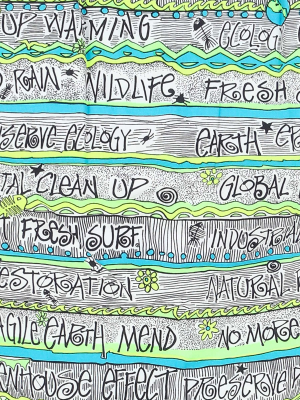 UP WARMING ECOLOGI
D RAIN WILDLIFE FRESH
SERVE ECOLOGY EARTH
TAL CLEAN UP GLOBAL
FRESH SURF INDUSTRIAL
ESTORATION NATURAL
AGILE EARTH MEND NO MORE
ENHOUSE EFFECT PRESERVE